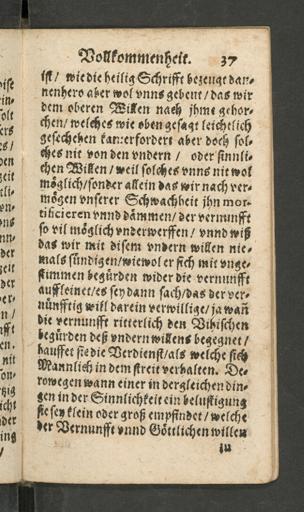 Vollkommenheit. 37
ist / wie die heilig Schrifft bezeugt dan-
nenhero aber wol vnns gebeut / das wir
dem oberen Willen nach jhme gehor-
chen / welches wie oben gesagt leichtlich
geschehen kan: erfordert aber doch sol-
ches nit von den vndern / oder sinnli-
chen Willen / weil solches vnns nit wol
möglich / sonder allein das wir nach ver-
mögen vnserer Schwachheit jhn mor-
tificieren vnnd dämmen / der vernunfft
so vil möglich vnderwerffen / vnnd wiß
das wir mit disem vndern willen nie-
mals sündigen / wiewol er sich mit vnge-
stimmen begürden wider die vernunfft
auffleinet / es sey dann sach / das der ver-
nünfftig will darein verwillige / ja wañ
die vernunfft ritterlich den Vihischen
begürden deß vndern willens begegnet /
hauffet sie die Verdienst / als welche sich
Mannlich in dem streit verhalten. De-
rowegen wann einer in dergleichen din-
gen in der Sinnlichkeit ein belustigung
sie sey klein oder groß empfindet / welche
der Vernunfft vnnd Göttlichen willen
zu